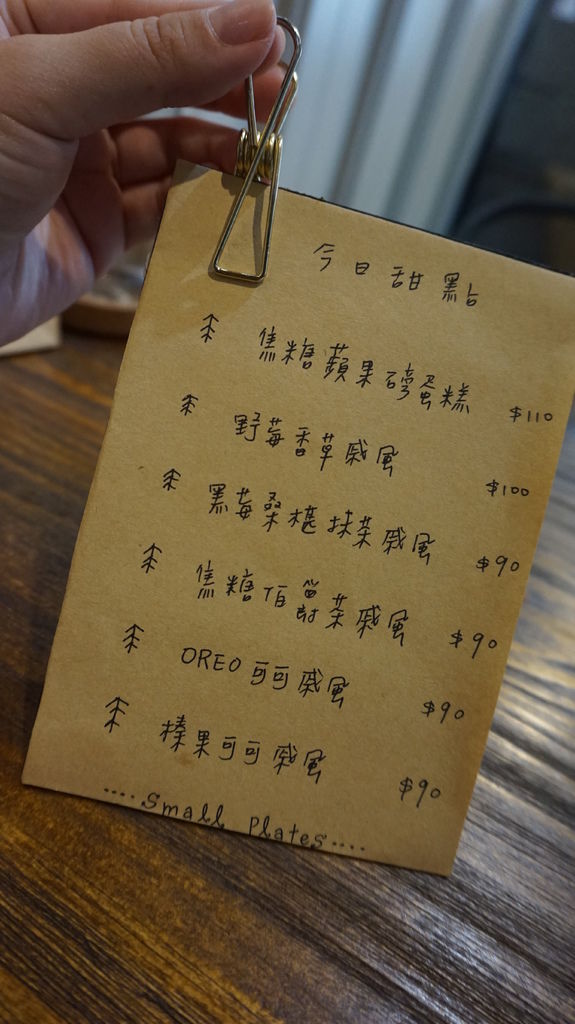 今日甜點
焦糖蘋果磅蛋糕 $110
野莓香草戚風 $100
黑莓桑椹抹茶戚風 $90
焦糖伯爵茶戚風 $90
OREO可可戚風 $90
榛果可可戚風 $90
....Small Plates....